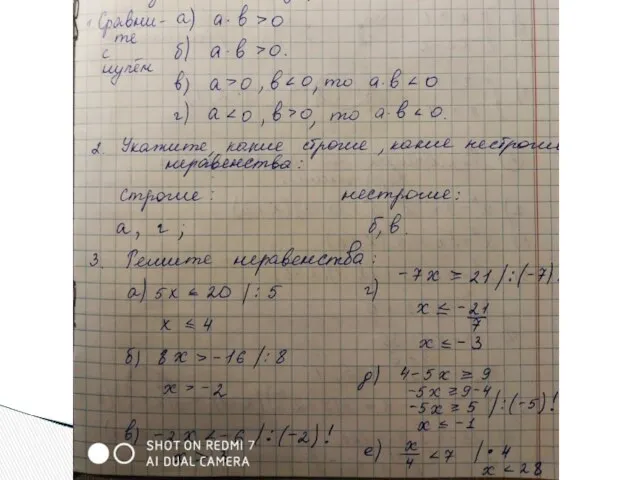 Сравни- а) а · в > 0
те
с б) а · в > 0.
нулём
в) а > 0, в < 0, то а·в < 0
г) а < 0, в > 0, то а·в < 0.
2. Укажите, какие строгие, какие нестрогие
неравенства:
строгие: нестрогие:
а, г; б, в.
3. Решите неравенства:
а) 5х ≤ 20 /: 5
х ≤ 4
б) 8х > -16 /: 8
х > -2
в) /: (-2)!
г) -7х ≥ 21 /: (-7)!
х ≤ -21/7
х ≤ -3
д) 4-5х ≥ 9
-5х ≥ 9-4
-5х ≥ 5 /: (-5)!
х ≤ -1
е) х/4 < 7 / • 4
х < 28
SHOT ON REDMI 7
AI DUAL CAMERA